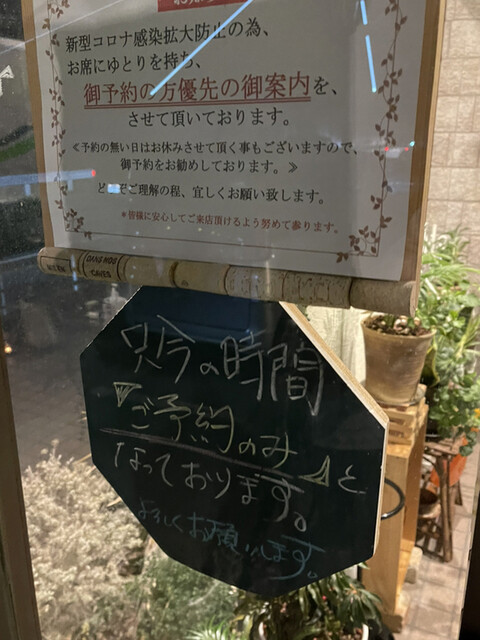 新型コロナ感染拡大防止の為、
お席にゆとりを持ち、
御予約の方優先の御案内を、
させて頂いております。
≪予約の無い日はお休みさせて頂く事もございますので、
御予約をお勧めしております。≫
どうぞご理解の程、宜しくお願い致します。
*皆様に安心してご来店頂けるよう努めて参ります。
只今の時間
『ご予約のみ』と
なっております。
よろしくお願いします。